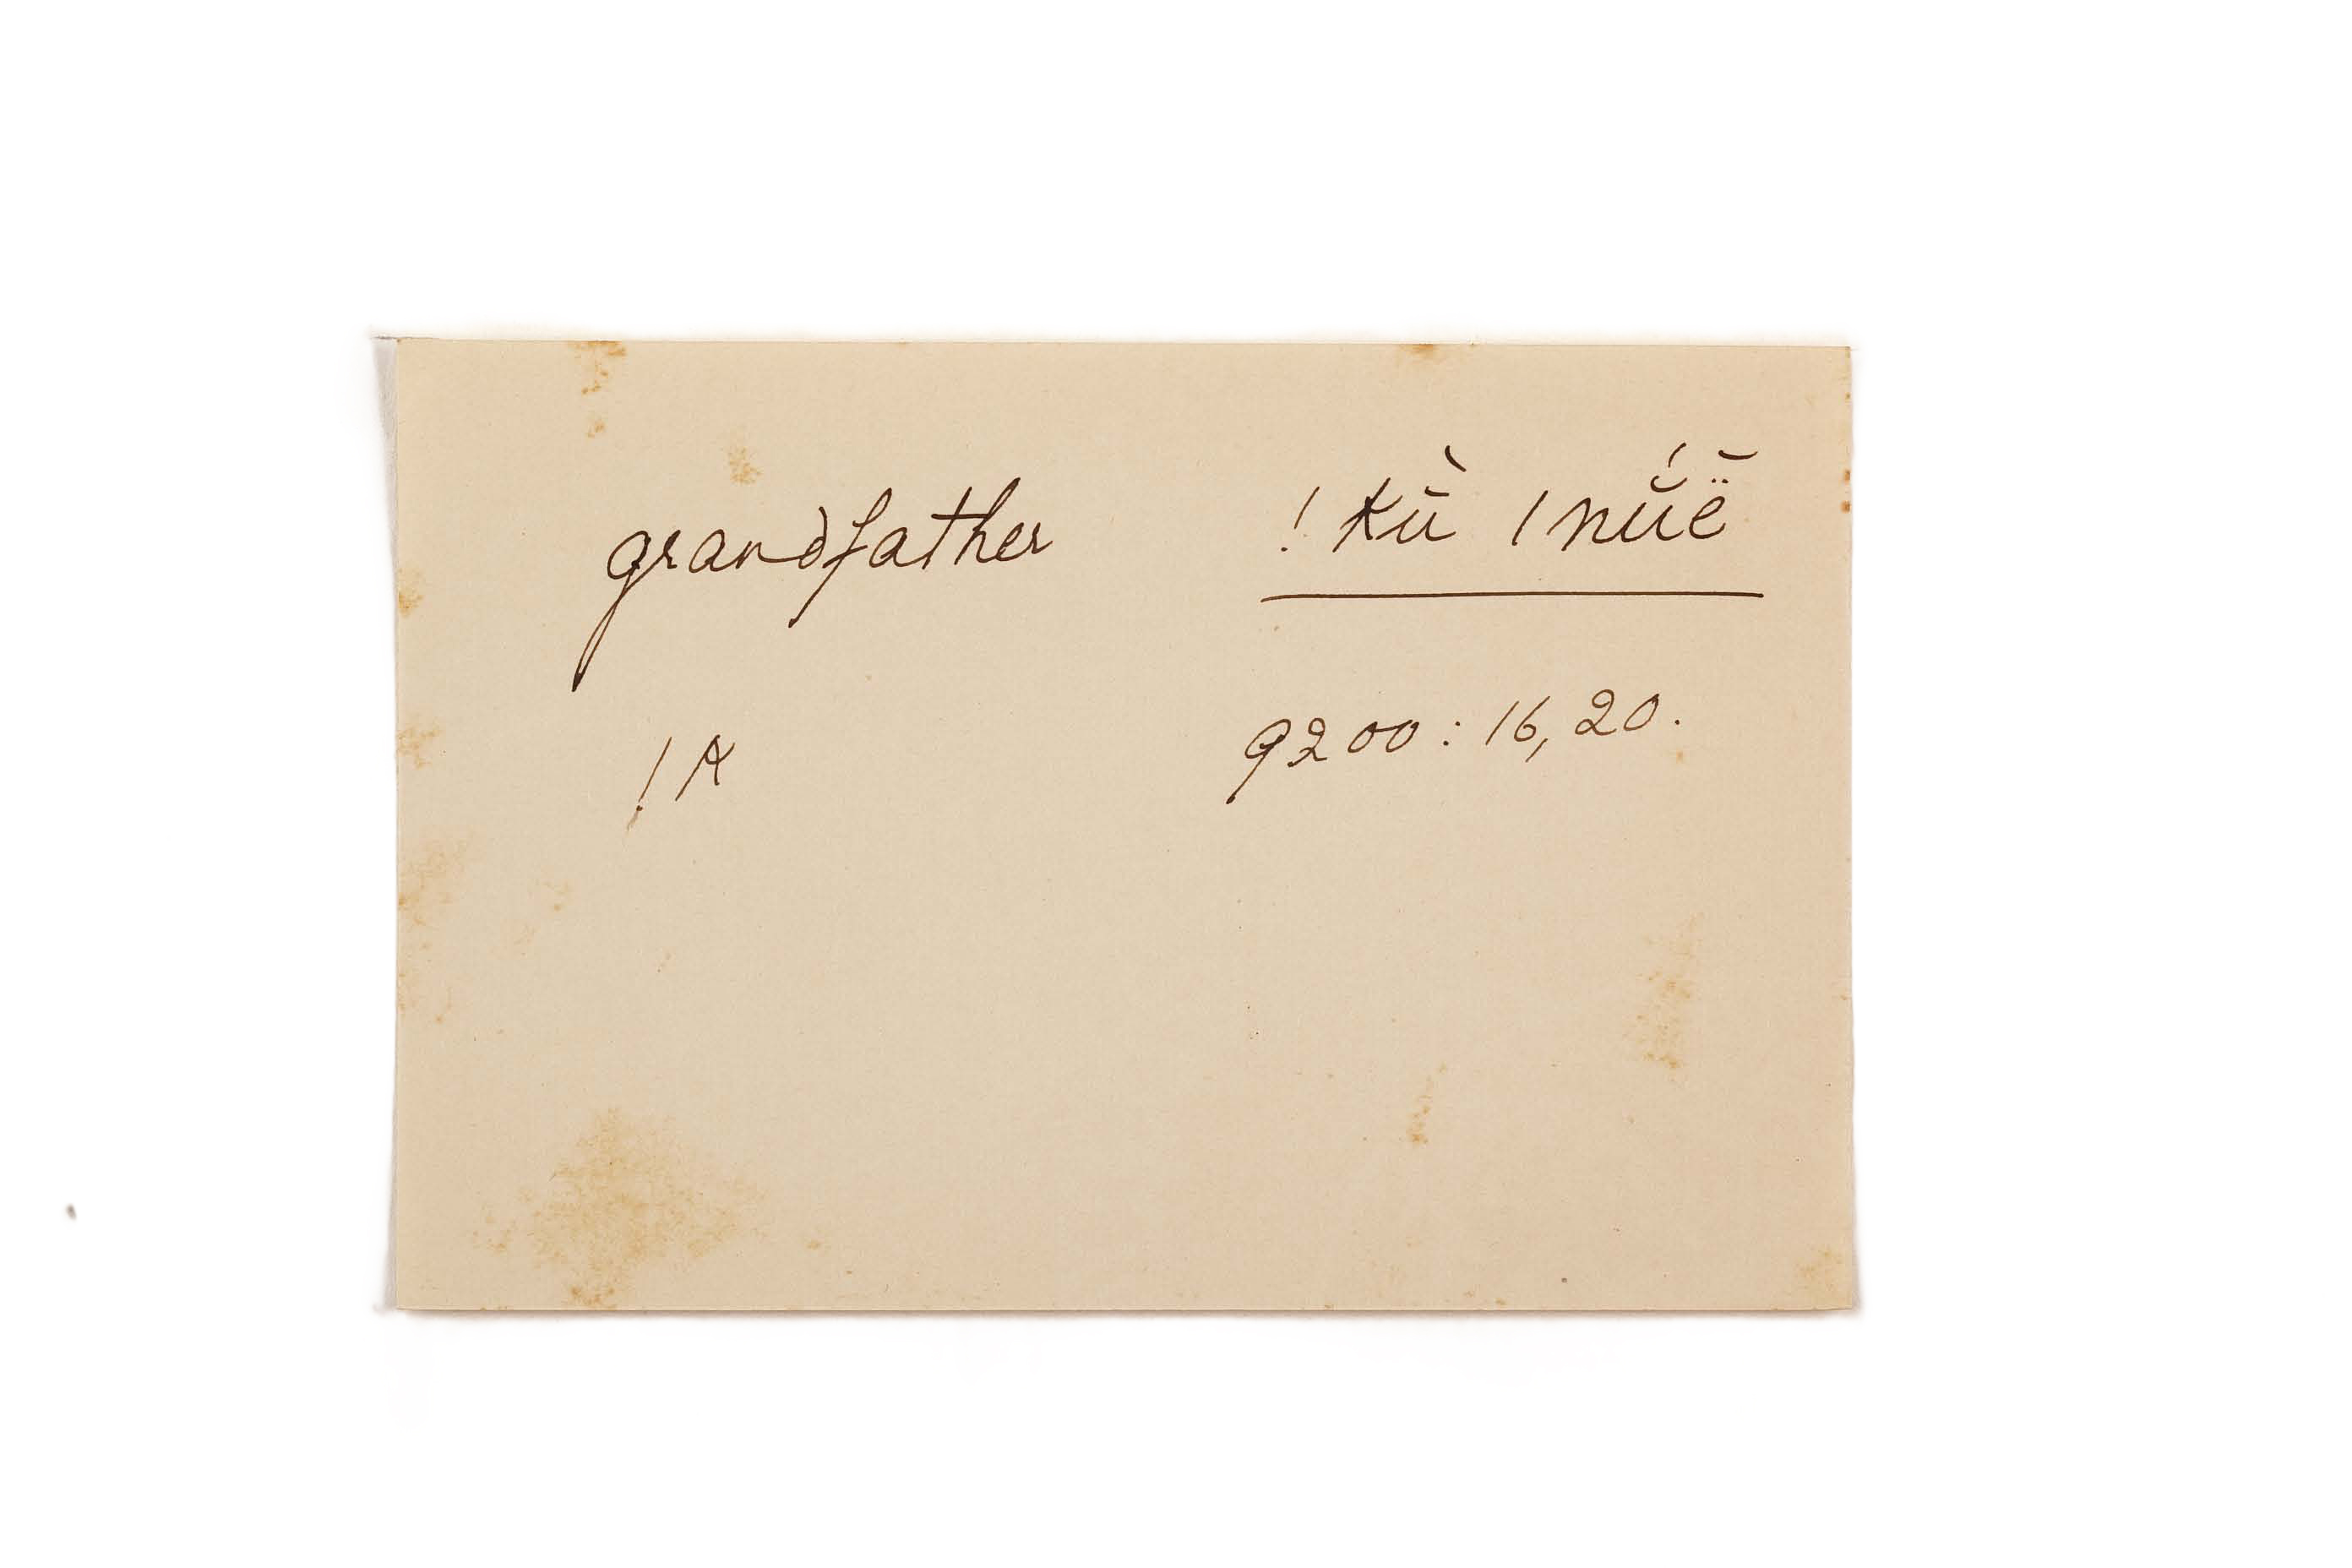 grandfather ! kṵ̄̀ ǀnṵ̆́ë̄
! k
9200 : 16, 20.